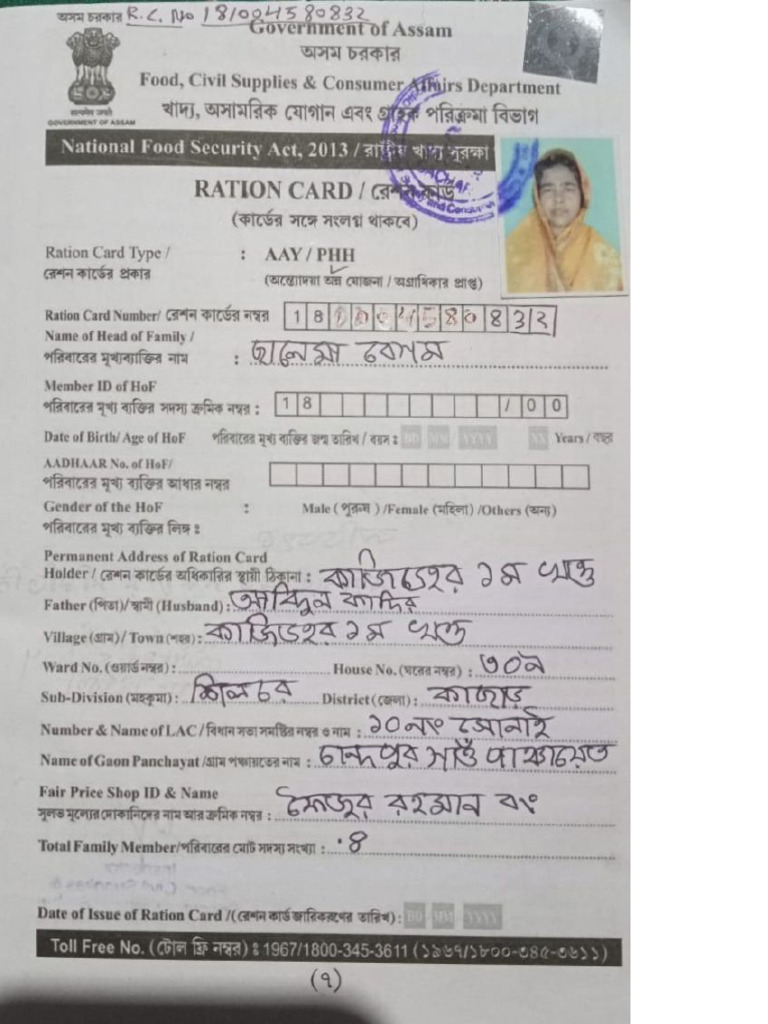 অসম চৰকাৰ R.C. No 181004580832
Government of Assam
অসম চৰকাৰ
Food, Civil Supplies & Consumer Affairs Department
খাদ্য, অসামরিক যোগান এবং গ্রাহক পরিক্রমা বিভাগ
सत्यमेव जयते
GOVERNMENT OF ASSAM
National Food Security Act, 2013 / রাষ্ট্রীয় খাদ্য সুরক্ষা
RATION CARD / রেশন কার্ড
(কার্ডের সঙ্গে সংলগ্ন থাকবে)
Ration Card Type / : AAY / PHH
রেশন কার্ডের প্রকার (অন্ত্যোদয়া অন্ন যোজনা / অগ্রাধিকার প্রাপ্ত)
Ration Card Number/ রেশন কার্ডের নম্বর 181004580832
Name of Head of Family /
পরিবারের মুখ্যব্যক্তির নাম : বেগম
Member ID of HoF
পরিবারের মুখ্য ব্যক্তির সদস্য ক্রমিক নম্বর : 18 / 00
Date of Birth/ Age of HoF পরিবারের মুখ্য ব্যক্তির জন্ম তারিখ / বয়স : DD MM YYYY XX Years / বছর
AADHAAR No. of HoF/
পরিবারের মুখ্য ব্যক্তির আধার নম্বর
Gender of the HoF : Male ( পুরুষ ) /Female (মহিলা) /Others (অন্য)
পরিবারের মুখ্য ব্যক্তির লিঙ্গ :
Permanent Address of Ration Card
Holder / রেশন কার্ডের অধিকারির স্থায়ী ঠিকানা : কাজিডহর ১ম খণ্ড
Father (পিতা)/ স্বামী (Husband) : আব্দুল কাদির
Village (গ্রাম)/ Town (শহর) : কাজিডহর ১ম খণ্ড
Ward No. (ওয়ার্ড নম্বর) : House No. (ঘরের নম্বর) :
Sub-Division (মহকুমা) : শিলচর District (জেলা) : কাছাড়
Number & Name of LAC / বিধান সভা সমষ্টির নম্বর ও নাম : ১০নং সোনাই
Name of Gaon Panchayat /গ্রাম পঞ্চায়তের নাম : চান্দপুর গাওঁ পাঞ্চায়েত
Fair Price Shop ID & Name
সুলভ মূল্যের দোকানিদের নাম আর ক্রমিক নম্বর : ফৈজুর রহমান বং
Total Family Member/পরিবারের মোট সদস্য সংখ্যা : 8
Date of Issue of Ration Card /(রেশন কার্ড জারিকরণের তারিখ) : DD MM YYYY
Toll Free No. (টোল ফ্রি নম্বর) : 1967/1800-345-3611 (১৯৬৭/১৮০০-৩৪৫-৩৬১১)
(১)